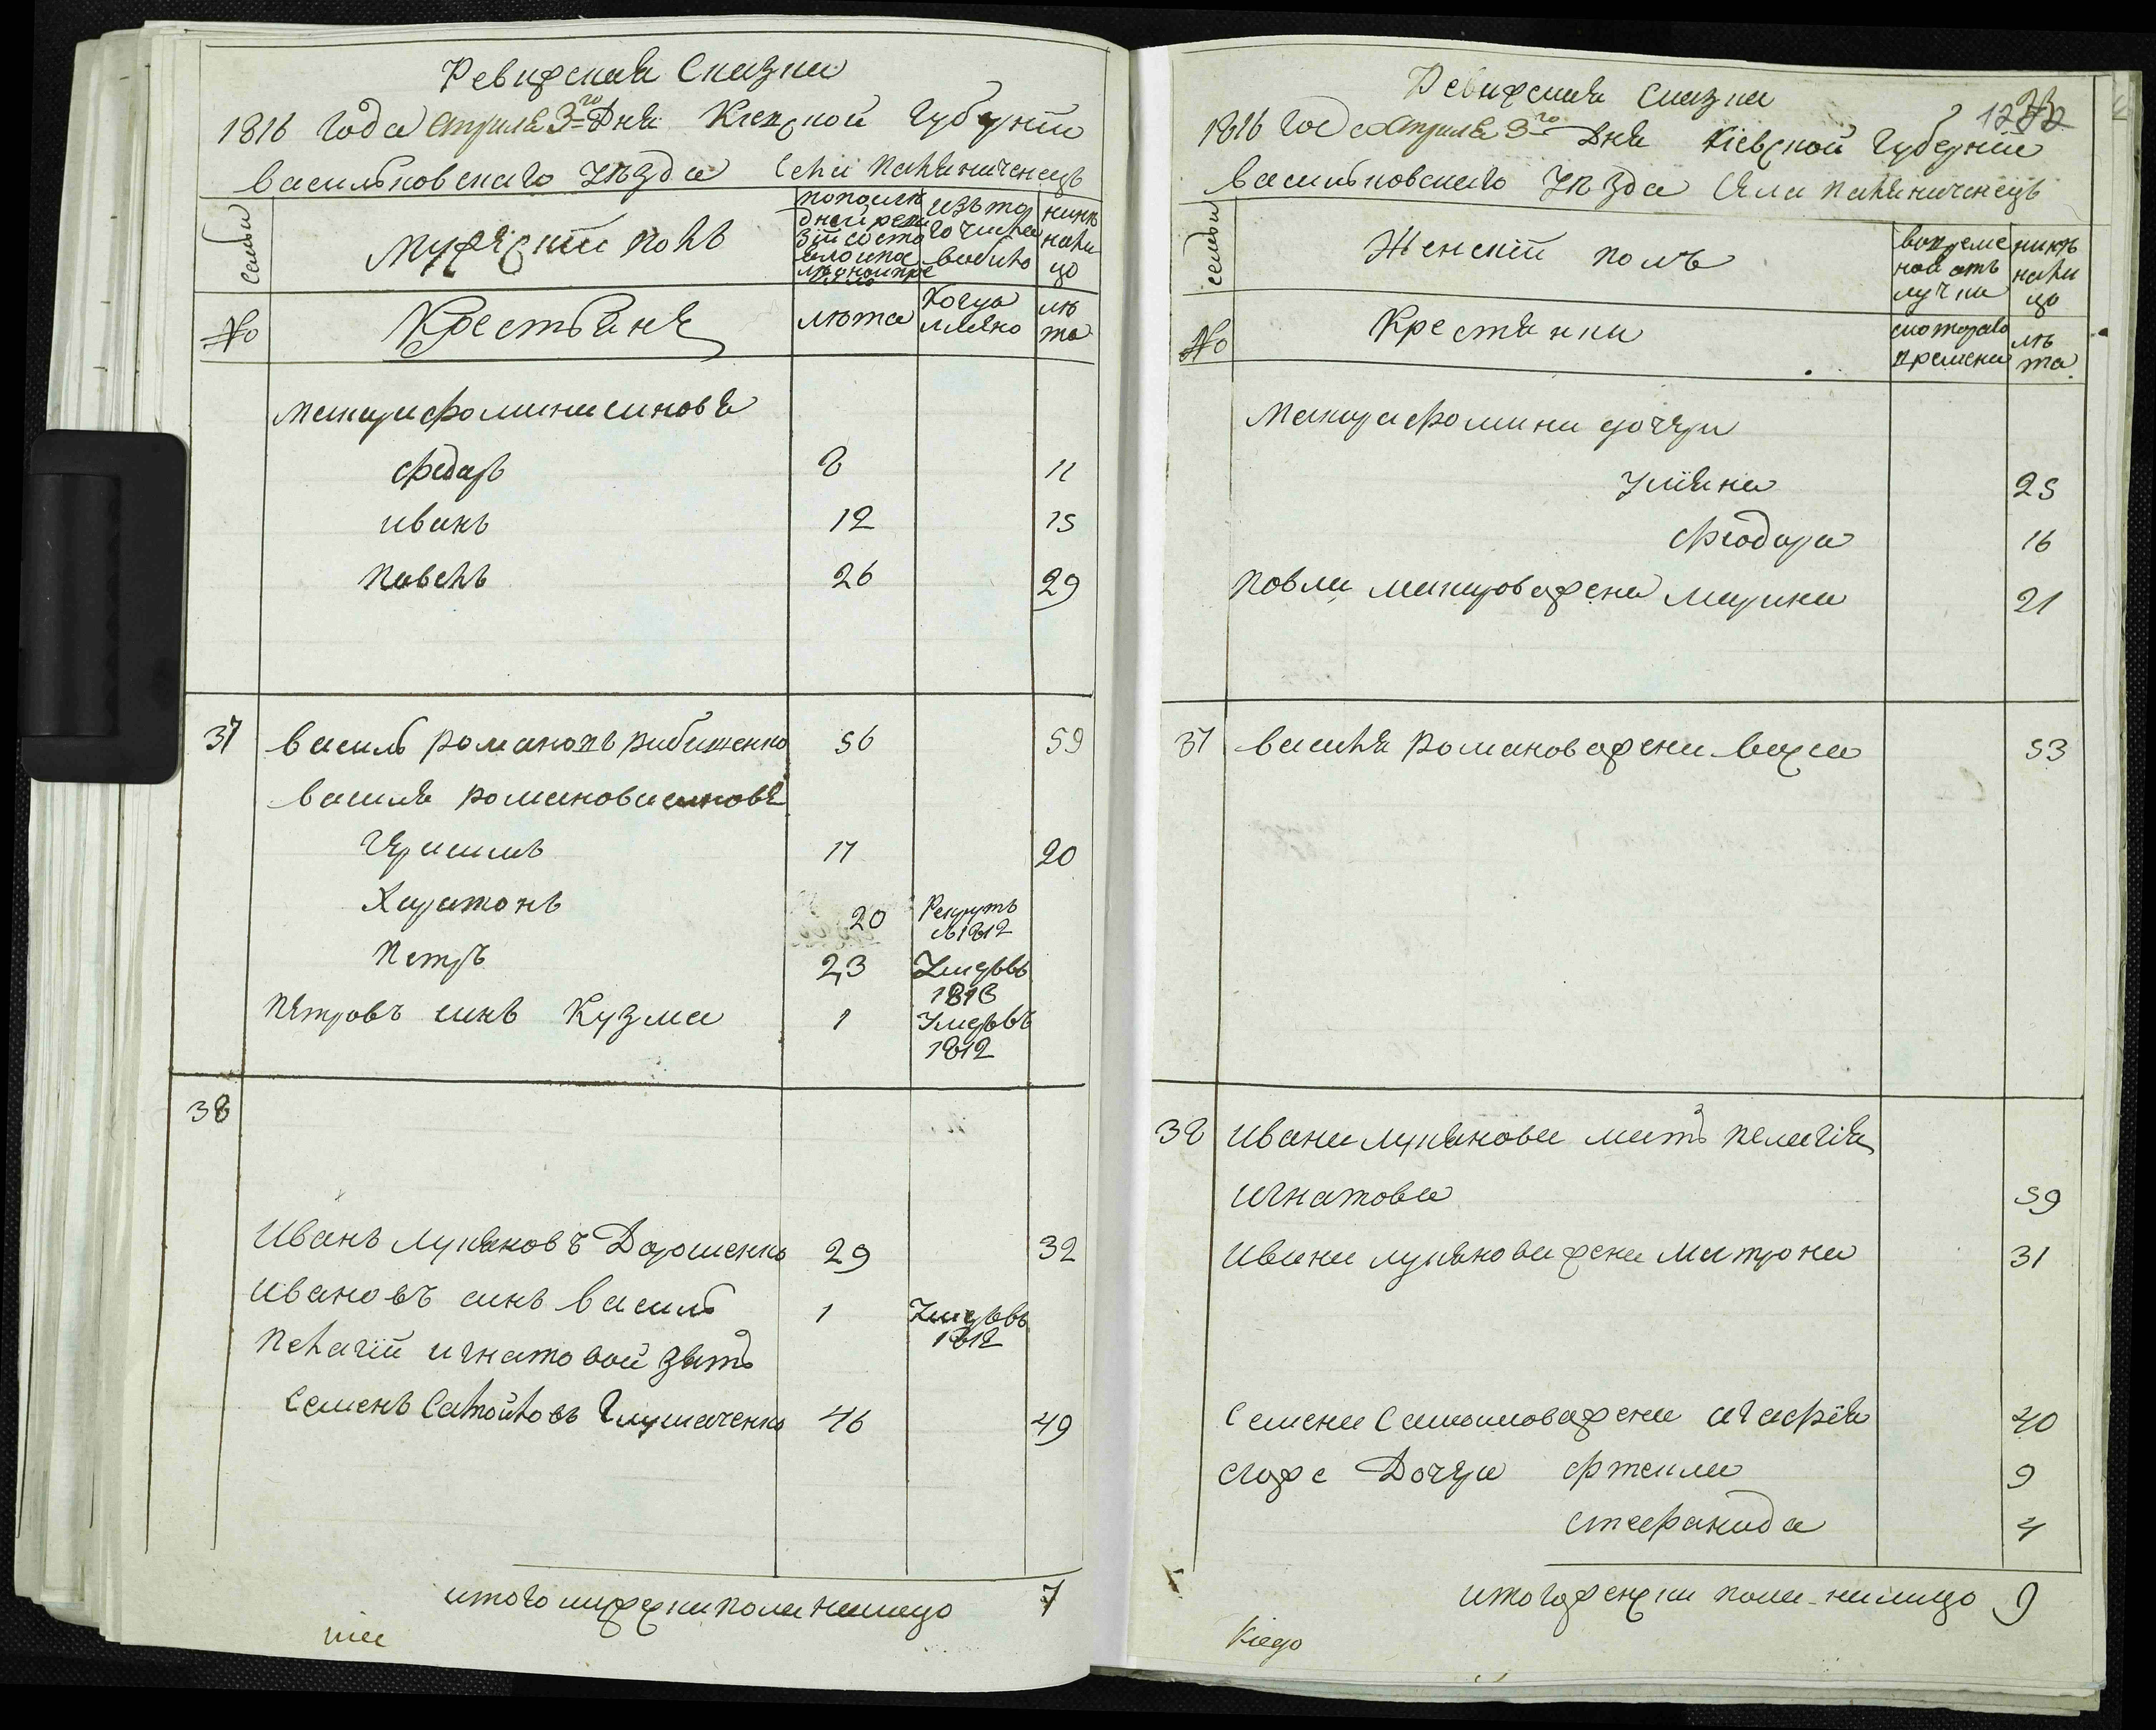 Ревизская Сказка
1816 года апреля 3го Дня Киевской губернии
васильковского уезда Села палиниченецъ
семьи
мужеский полъ
по последней ревизии состояло и после оной прибыло
изъ того числа выбыло
ныне налицо
№
Крестьяне
лета
Когда именно
лета
макара фомина синове
федоръ 8 11
иванъ 12 15
павелъ 26 29
37 василь романовъ рибаченко 56 59
василя романова синове
Герасимъ 17 20
Харитонъ 20 Рекрутъ в 1812
Петръ 23 Умерввъ 1813
Петровъ синъ Кузма 1 Умерввъ 1812
38
Иванъ лукяновъ Дорошенко 29 32
Ивановъ синъ василь 1 Умерввъ 1812
Пелагии игнатовой зять
Семенъ Самойловъ Глушаченко 46 49
итого мужеска пола налицо 7
Ревизская Сказка
1816 года апреля 3го Дня Кіевской губерніи
васильковского уезда Села палиниченецъ
семьи
Женскій полъ
во временной отлучки
ныне налицо
№
Крестянки
с которого времени
лета
макара фомина дочери
Уліяна 25
Феодора 16
Павла макарова жена марина 21
37 василя романова жена васса 53
38 ивана лукянова мать пелагія
игнатова 59
ивана лукянова жена матрона 31
Семена Самойлова жена агафія 40
егоже Дочери фтекла 9
стефанида 4
итого женска пола налицо 9